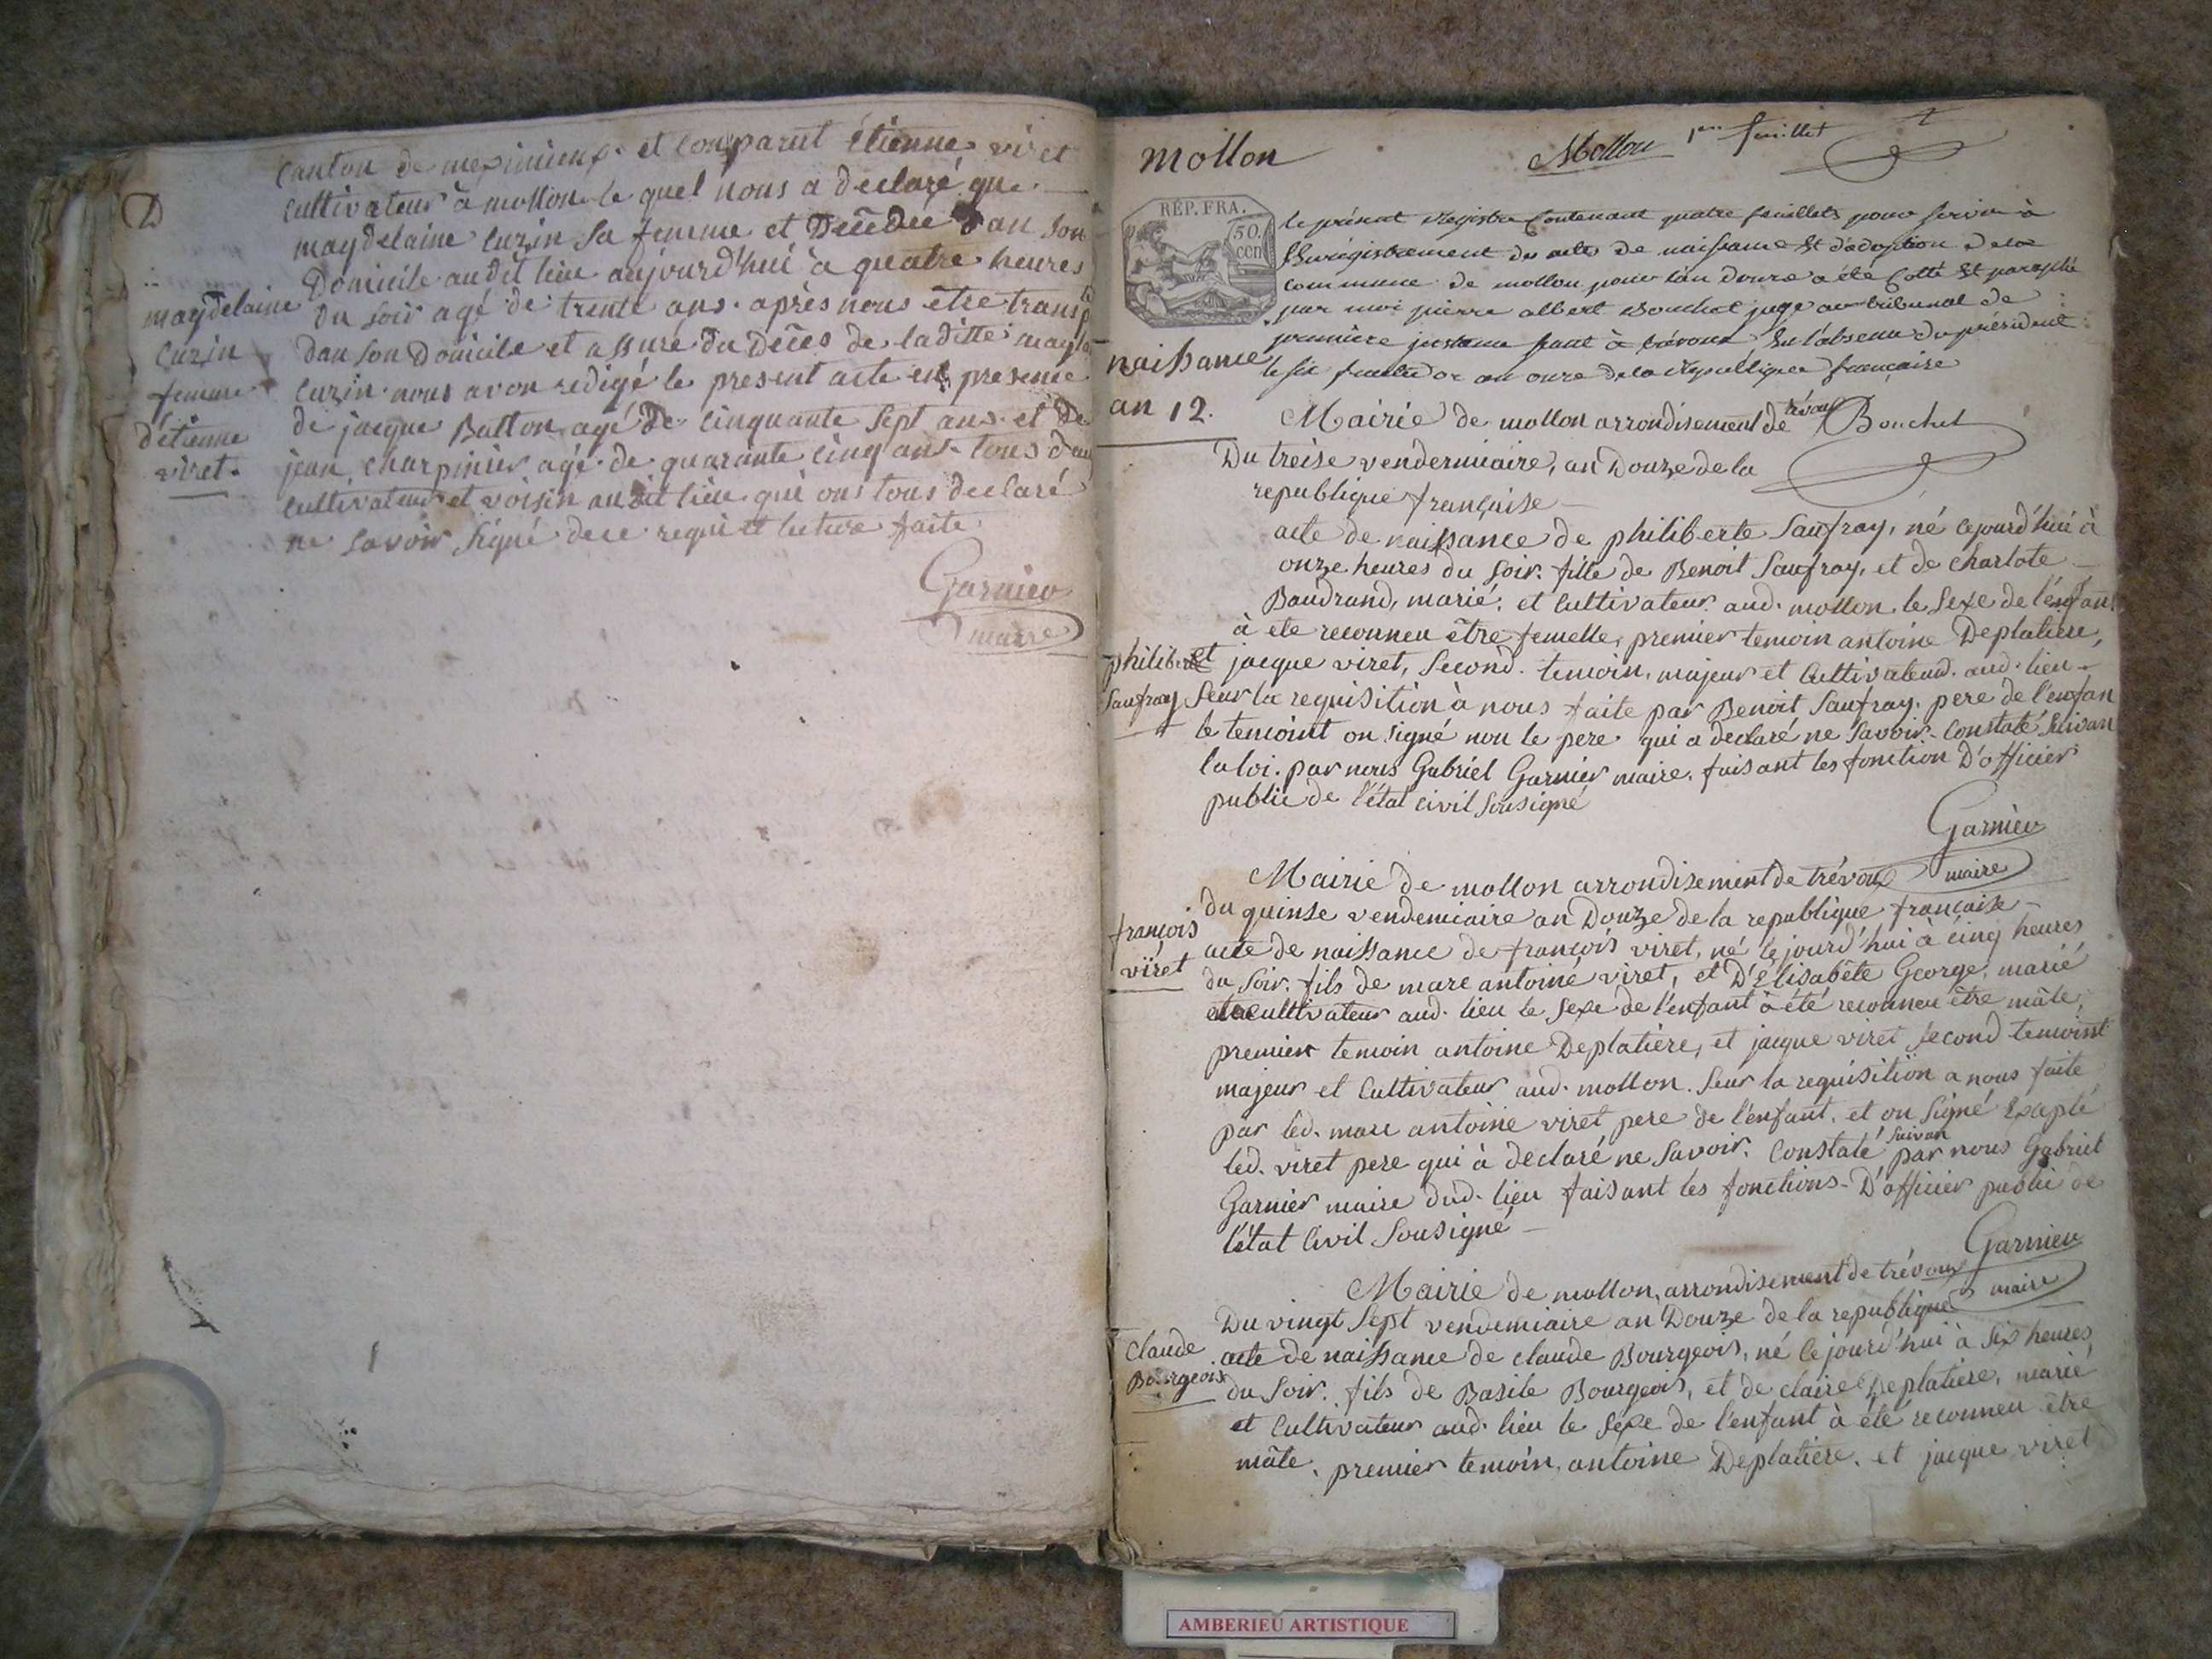 D
maydelaine
Cuzin
femme
d'étienne
viret.
Canton de meximieux. et comparut étienne viret
cultivateur à mollon le quel nous a declaré que
maydelaine Cuzin sa femme et Décédée dan son
Domicile audit lieu aujourd'hui à quatre heures
du soir agé de trente ans. après nous être transp
dan son Domicile et assure du Décès de laditte mayd
Cuzin nous avon redigé le present acte en presence
de jacque Button agé de cinquante sept ans et de
jean charpinier agé de quarante cinq ans tous d'au
cultivateur et voisin audit lieu qui ons tous declaré
ne savoir signé de ce requi et lecture faite
Garnier
maire
mollon
Mollon 1er feuillet
RÉP. FRA.
50.
cen
le présent registre contenant quatre feuillets pour servir à
l'Enrégistrement des actes de naissance et d'adoption de la
commune de mollon pour l'an douze a été Cotté et paraphé
par moi pierre albert Bouchet juge au tribunal de
première instance séant à trévoux, en l'absence du président
le six fructidor an onze de la république française
naissance
an 12.
Mairie de mollon arrondisement de trévoux Bouchet
Du treise vendermiaire, an Douze de la
republique française
acte de naissance de philiberte Saufray, né cejourd'hui à
onze heures du soir. fille de Benoit Saufray, et de charlote
Baudrand, marié. et cultivateur aud. mollon. le sexe de l'enfant
à ete reconneu être femelle, premier temoin antoine Deplatiere,
philibert
Saufray
et jacque viret, second temoin, majeur et cultivateur aud. lieu
Seur la requisition à nous faite par Benoit Saufray. pere de l'enfan
le temoint on signé non le pere qui a declaré ne savoir. Constaté suivan
la loi. par nous Gabriel Garnier maire, faisant les fonction D'officier
public de l'état civil sousigné
Garnier
maire
Mairie de mollon arrondisement de trévoux
du quinse vendemiaire an Douze de la republique française
françois
viret
acte de naissance de françois viret, né cejourd'hui à cinq heures
du soir. fils de marc antoine viret, et D'Elisabète George, marié
et cultivateur aud. lieu le sexe de l'enfant à été reconneu être mâle,
premier temoin antoine Deplatière, et jacque viret second temoint
majeur et cultivateur aud. mollon. seur la requisition a nous faite
par led. marc antoine viret pere de l'enfant. et on signé Exepté
led. viret pere qui à declaré ne savoir. Constaté suivan par nous Gabriel
Garnier maire dud. lieu faisant les fonctions D'officier public de
l'état civil sousigné
Garnier
maire
Mairie de mollon, arrondisement de trévoux
Du vingt sept vendemiaire an Douze de la republique
Claude
Bourgeois
acte de naissance de claude Bourgeois, né cejourd'hui à six heures
du soir. fils de Basile Bourgeois, et de claire Deplatiere, marié
et cultivateur aud. lieu le sexe de l'enfant à été reconneu être
mâle, premier temoin, antoine Deplatiere. et jacque viret
AMBERIEU ARTISTIQUE